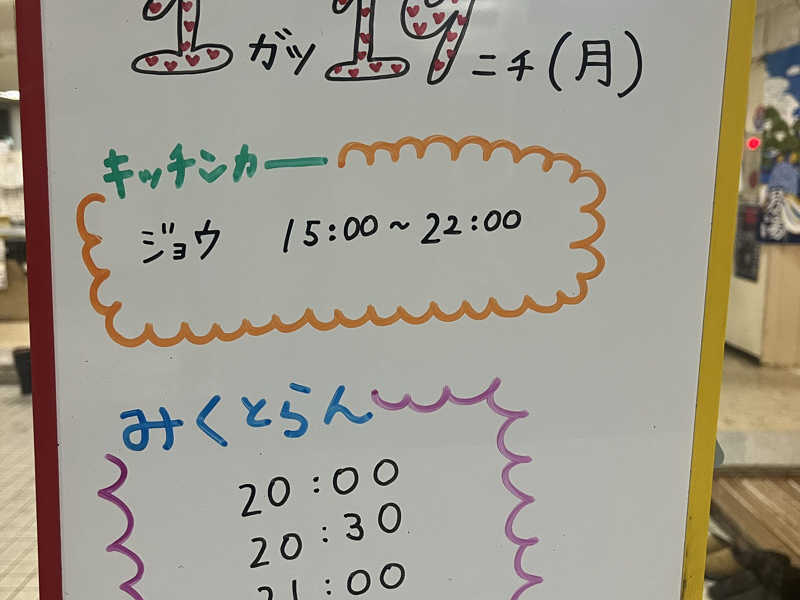 1ガツ19ニチ(月)
キッチンカー
ジョウ 15:00~22:00
みくとらん
20:00
20:30
21:00